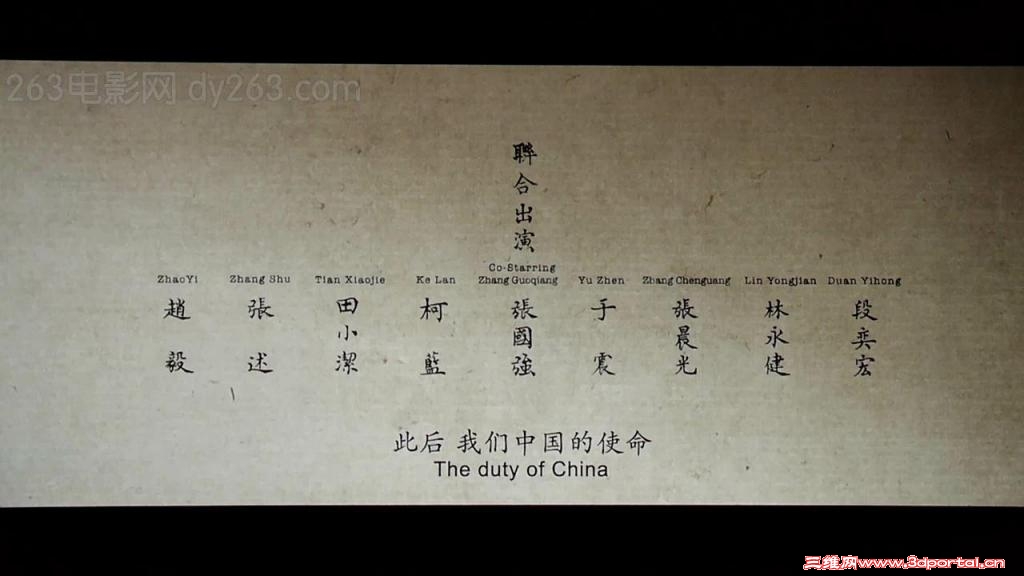 263电影网 dy263.com
聯合出演
Co-Starring
ZhaoYi Zhang Shu Tian Xiaojie Ke Lan Zhang Guoqiang Yu Zhen Zhang Chenguang Lin Yongjian Duan Yihong
趙毅 張述 田小潔 柯藍 張國強 于震 張晨光 林永健 段奕宏
此后 我们中国的使命
The duty of China
三维网www.3dportal.cn